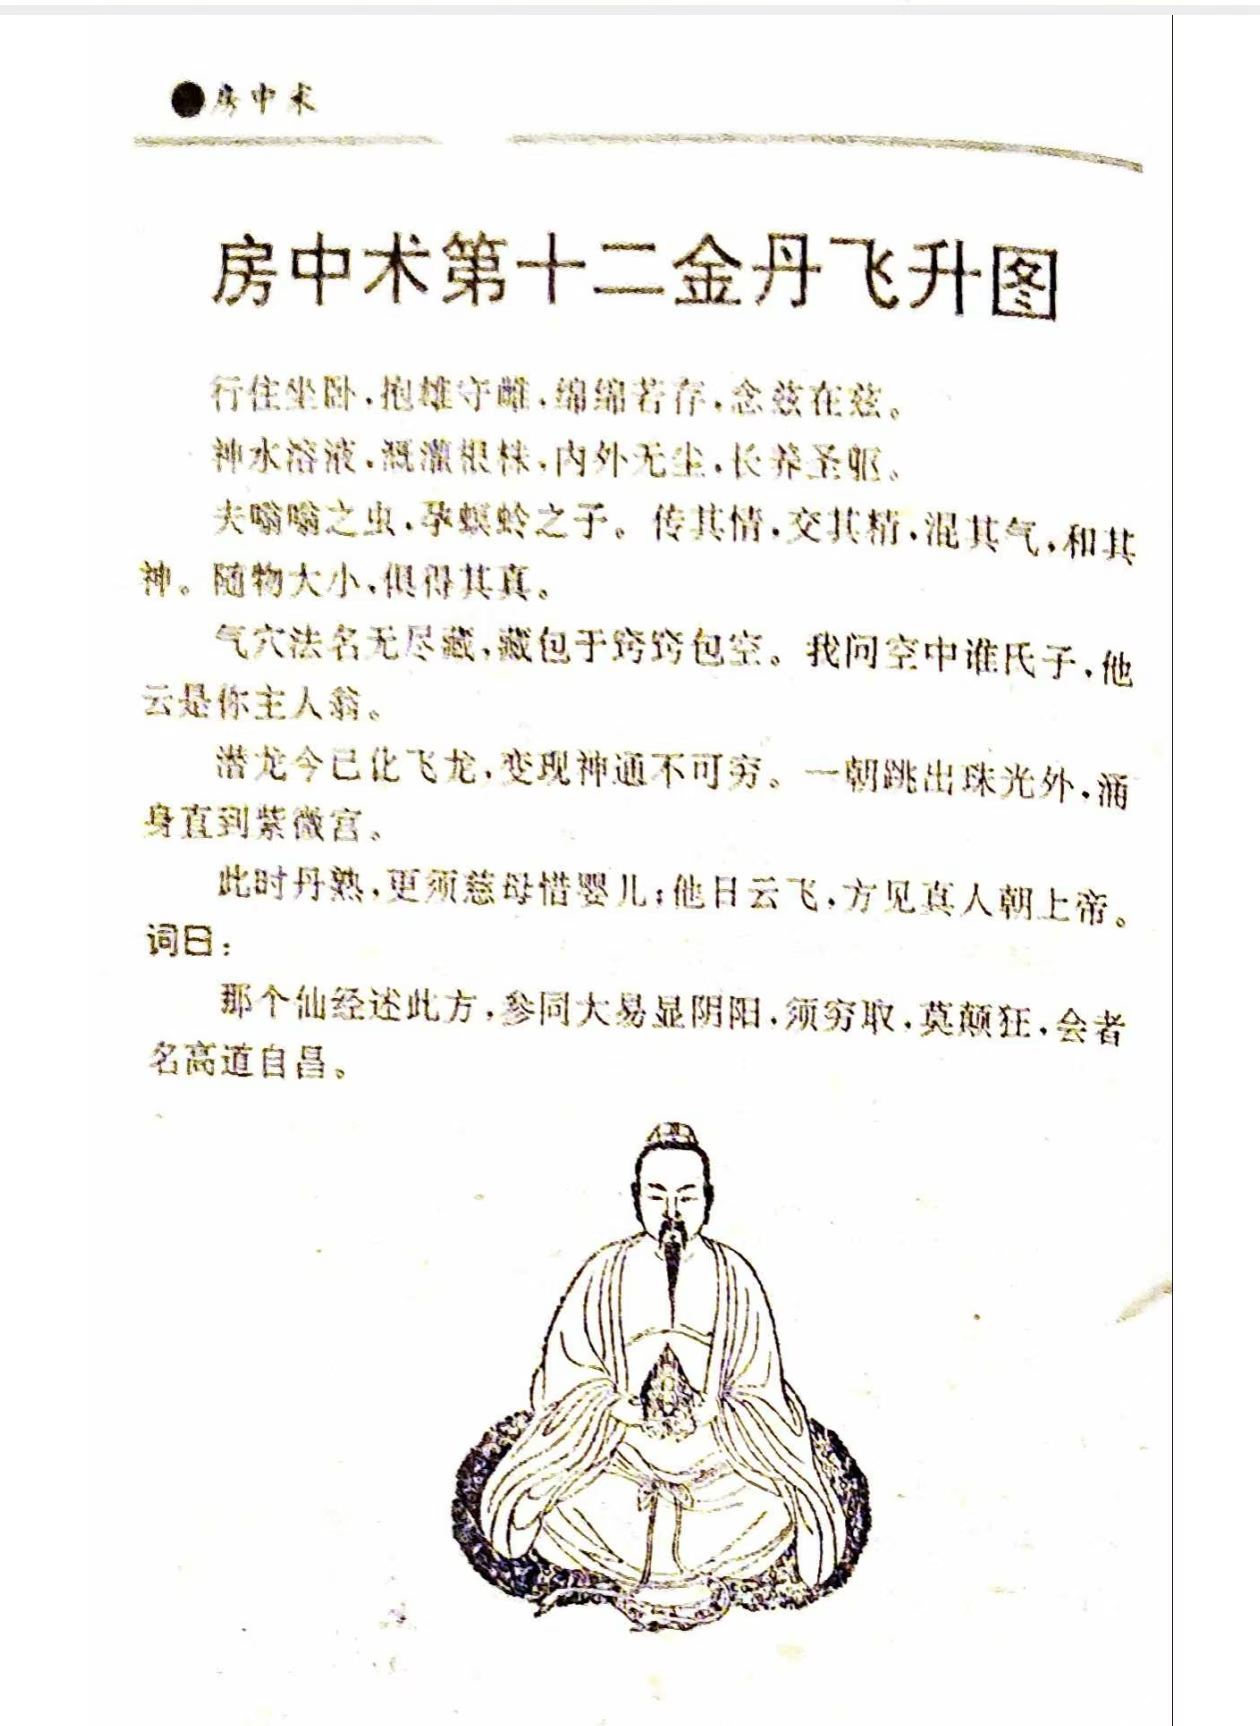 房中术
房中术第十二金丹飞升图
行住坐卧，抱雄守雌，绵绵若存，念兹在兹。
神水溶液，溉灌根株，内外无尘，长养圣躯。
夫嗡嗡之虫，孕螟蛉之子。传其情，交其精，混其气，和其
神。随物大小，俱得其真。
气穴法名无尽藏，藏包于窍窍包空。我问空中谁氏子，他
云是你主人翁。
潜龙今已化飞龙，变现神通不可穷。一朝跳出珠光外，涌
身直到紫微宫。
此时丹熟，更须慈母惜婴儿；他日云飞，方见真人朝上帝。
词曰：
那个仙经述此方，参同大易显阴阳，须穷取，莫颠狂，会者
名高道自昌。